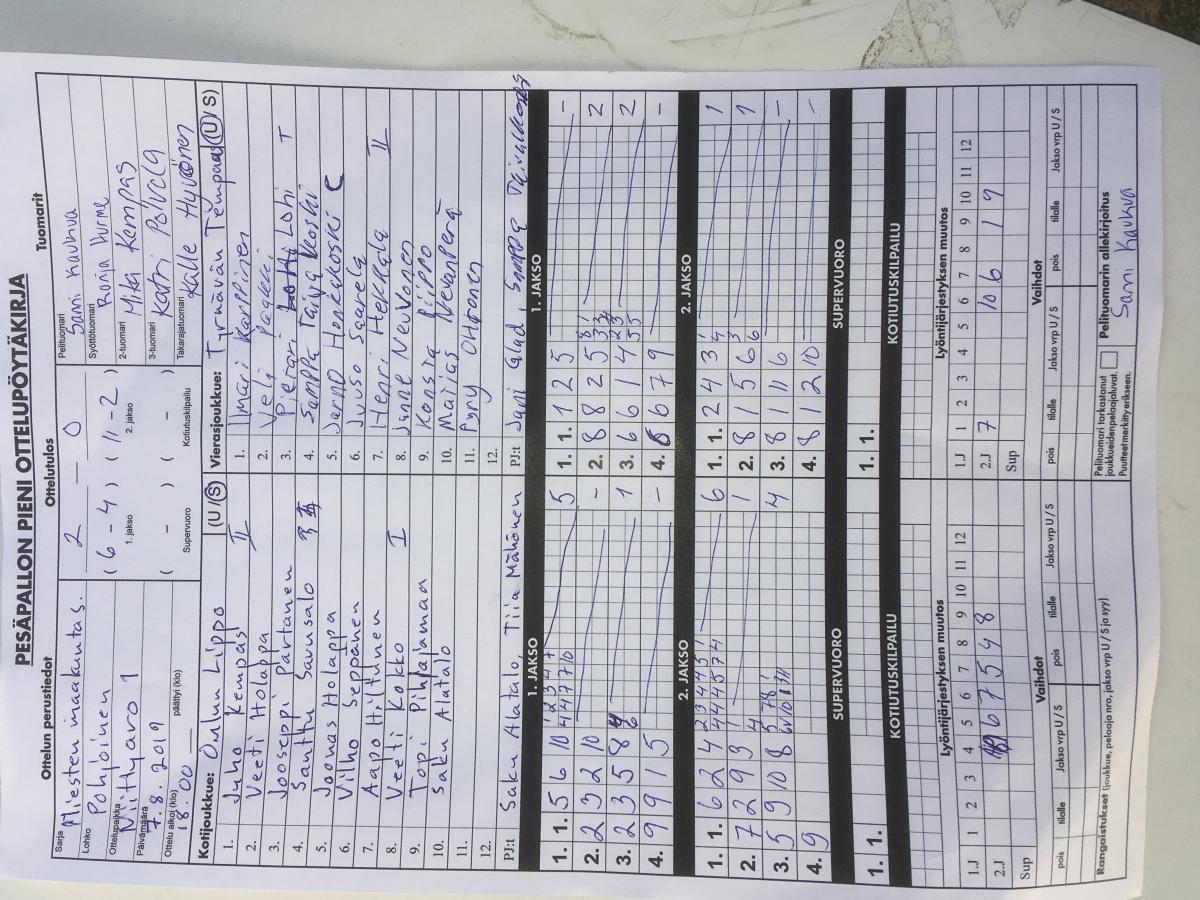 PESÄPALLON PIENI OTTELUPÖYTÄKIRJA
Ottelun perustiedot
Ottelutulos
Tuomarit
Sarja
Miesten maakuntas.
Lohko
Pohjoinen
Ottelupaikka
Niittyaro 1
Päivämäärä
7.8.2019
Ottelu alkoi (klo)
18.00
päättyi (klo)
2 – 0
( 6 – 4 ) ( 11 – 2 )
1. jakso
2. jakso
( – ) ( – )
Supervuoro
Kotiutuskilpailu
Pelituomari
Sanni Kauhua
Syöttötuomari
Ronja Hurme
2-tuomari
Mika Kempas
3-tuomari
Katri Polvela
Takarajatuomari
Kalle Hyvönen
Kotijoukkue: Oulun Lippo (U / S)
1. Juho Kempas II
2. Veeti Holappa
3. Joosepi Partanen
4. Santtu Savusalo
5. Joonas Holappa
6. Vilho Seppänen
7. Aapo Hiltunen
8. Veeti Kokko I
9. Topi Pihlajamaa
10. Saku Alatalo
11.
12.
PJ:t Saku Alatalo, Tiia Mähönen
Vierasjoukkue: Tyrnävän Tempaus (U / S)
1. Ilmari Karppinen
2. Veli Paakki
3. Pietari Lohi T
4. Samppa Taivalkoski
5. Jarno Honkakoski C
6. Juuso Saarela
7. Henri Heikkala II
8. Janne Neuvonen
9. Konsta Piippo
10. Matias Nevanperä
11. Pyry Ohtonen
12.
PJ:t Jani Glad, Samppa
1. JAKSO
1. 1. 5 6 10
5
2. 2 3 2 10
–
3. 2 3 5 8
1
4. 9 9 1 5
–
1. JAKSO
1. 1. 1 2 5
–
2. 8 8 2 5
2
3. 6 6 1 4
2
4. 6 6 7 9
–
2. JAKSO
1. 1. 6 2 4
6
2. 7 2 9 3
1
3. 5 9 10 8
4
4. 9
2. JAKSO
1. 1. 2 4 3
1
2. 8 1 5 6
1
3. 8 1 11 6
–
4. 8 1 2 10
–
SUPERVUORO
1. 1.
SUPERVUORO
1. 1.
KOTIUTUSKILPAILU
KOTIUTUSKILPAILU
Lyöntijärjestyksen muutos
1.J 1 2 3 4 5 6 7 8 9 10 11 12
2.J 6 7 5 4 8
Sup
Lyöntijärjestyksen muutos
1.J 1 2 3 4 5 6 7 8 9 10 11 12
2.J 7 10 6 1 9
Sup
Vaihdot
pois tilalle Jakso vrp U / S pois tilalle Jakso vrp U / S
Vaihdot
pois tilalle Jakso vrp U / S pois tilalle Jakso vrp U / S
Rangaistukset (joukkue, pelaaja nro, jakso vrp U / S ja syy)
Pelituomari tarkastanut
joukkueidenpelaajaluvat.
Puutteet merkitty erikseen.
Pelituomarin allekirjoitus
Sanni Kauhua